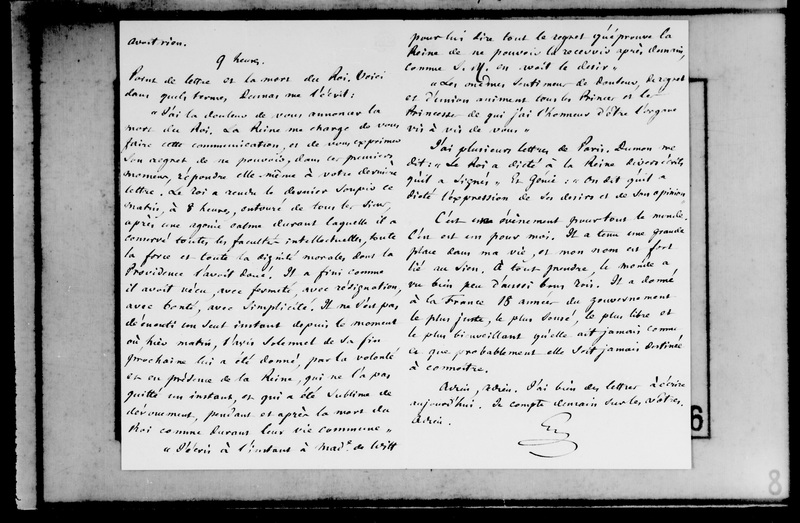 avait rien.
9 heures.
Point de lettre et la mort du Roi. Voici
dans quels termes Dumas me l'écrit :
"J'ai la douleur de vous annoncer la
mort du Roi. La Reine me charge de vous
faire cette communication, et de vous exprimer
son regret de ne pouvoir, dans ces premiers
momens, répondre elle-même à votre dernière
lettre. Le Roi a rendu le dernier soupir ce
matin, à 8 heures, entouré de tous les siens,
après une agonie calme durant laquelle il a
conservé toutes les facultés intellectuelles, toute
la force et toute la dignité morales dont la
Providence l'avait doué. Il a fini comme
il avait vécu, avec fermeté, avec résignation,
avec bonté, avec simplicité. Il ne s'est pas
démenti un seul instant depuis le moment
où, hier matin, l'avis solemnel de sa fin
prochaine lui a été donné, par la volonté
et en présence de la Reine, qui ne l'a pas
quitté un instant, et qui a été sublime de
dévouement, pendant et après la mort du
Roi comme durant leur vie commune"
"J'écris à l'instant à Made de Witt
pour lui dire tout le regret qu'éprouve la
Reine de ne pouvoir la recevoir après demain,
comme S. M. en avoit le desir"
"Les mêmes sentimens de douleur, de regret
et d'union animent tous les Princes et les
Princesses de qui j'ai l'honneur d'être l'organe
vis à vis de vous"
J'ai plusieurs lettres de Paris. Dumon me
dit : "Le Roi a dicté à la Reine divers écrits
qu'il a signés" Et Génie : "On dit qu'il a
dicté l'expression de ses desirs et de son opinion"
C'est un évènement pour tout le monde.
C'en est un pour moi. Il a tenu une grande
place dans ma vie, et mon nom est fort
lié au sien. A tout prendre, le monde a
vu bien peu d'aussi bons Rois. Il a donné
à la France 18 années du gouvernement
le plus juste, le plus sensé, le plus libre et
le plus bienveillant qu'elle ait jamais connu
et que probablement elle soit jamais destinée
à connoître.
Adieu, adieu. J'ai bien des lettres à écrire
aujourd'hui. Je compte demain sur les vôtres.
Adieu.
6
8